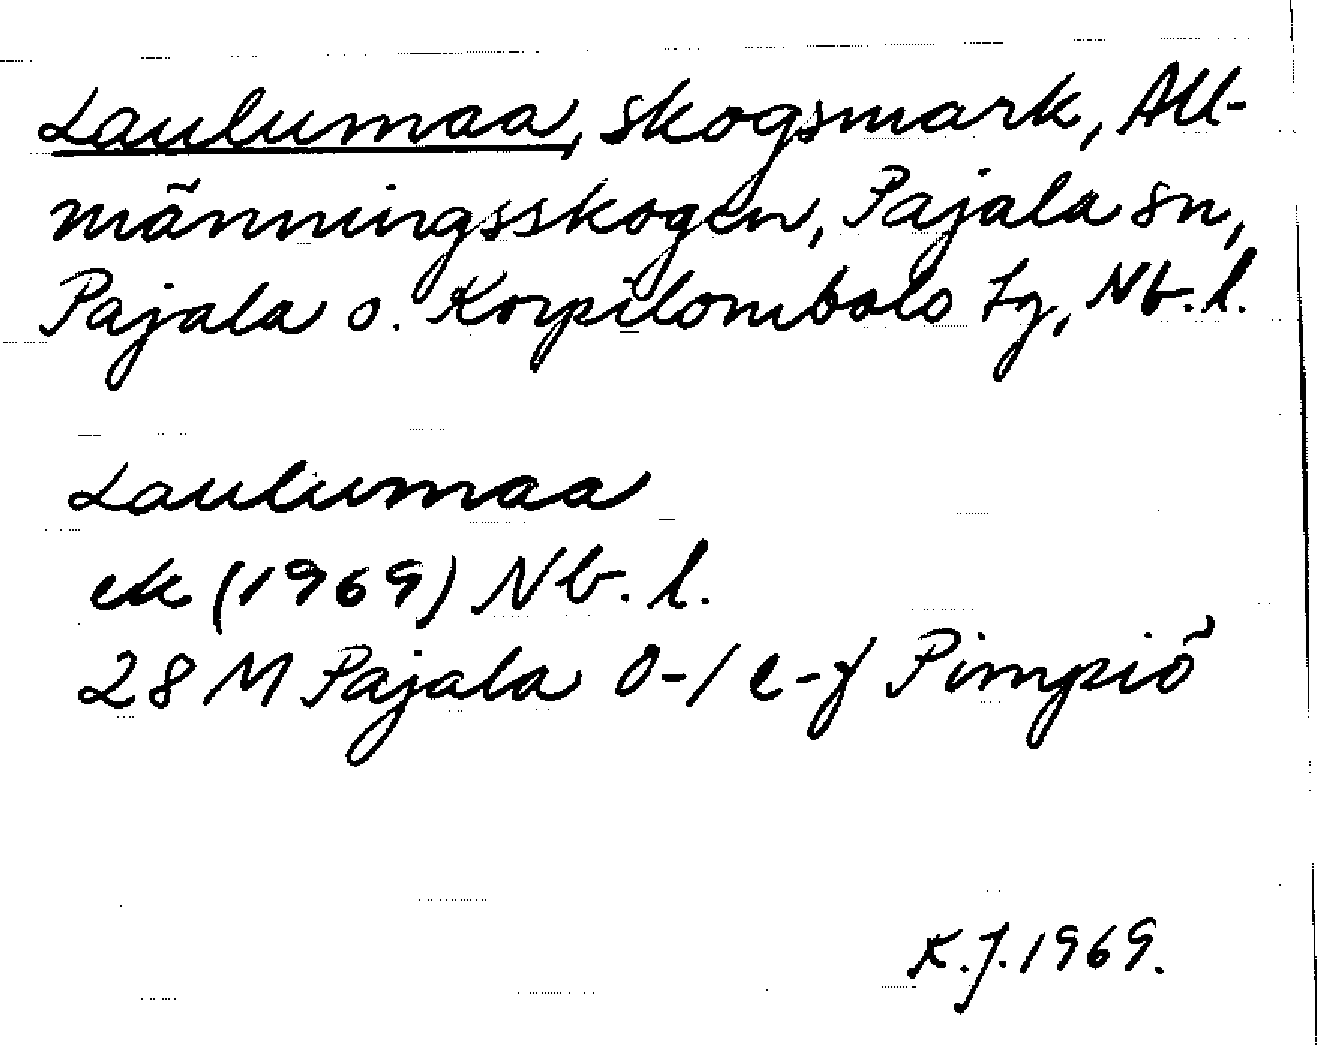 Laulumaa, skogsmark, All-
männingsskogen, Pajala sn,
Pajala o. Korpilombolo tg, Nb.l.
Laulumaa
ek (1969) Nb.l.
28 M Pajala 0-1 e-f Pimpiö
K.J. 1969.